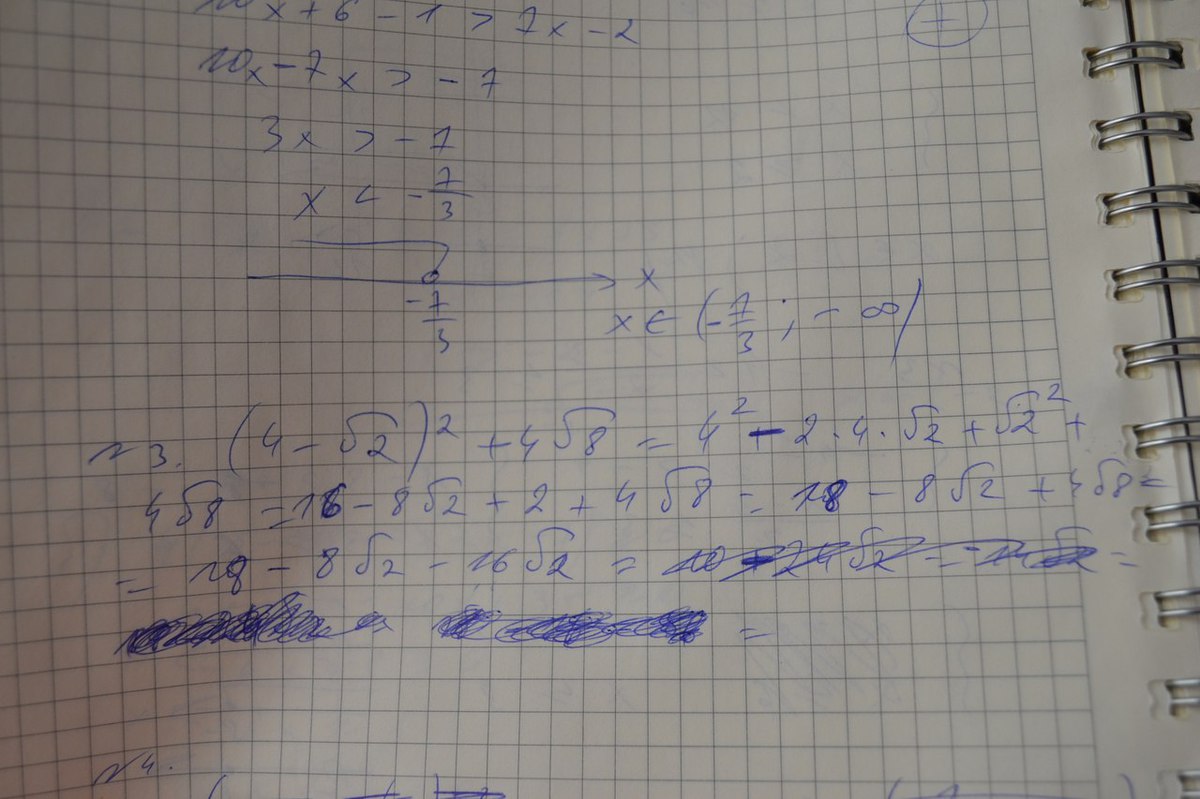 10x + 6 - 1 > 7x - 2
10x - 7x > - 7
3x > - 7
x < - 7/3
x
- 7/3
x ∈ (- 7/3 ; - ∞)
N3. (4 - √2)² + 4√8 = 4² - 2 · 4 · √2 + √2² +
4√8 = 16 - 8√2 + 2 + 4√8 = 18 - 8√2 + 4√8 =
= 18 - 8√2 - 16√2 = =
=
N4.